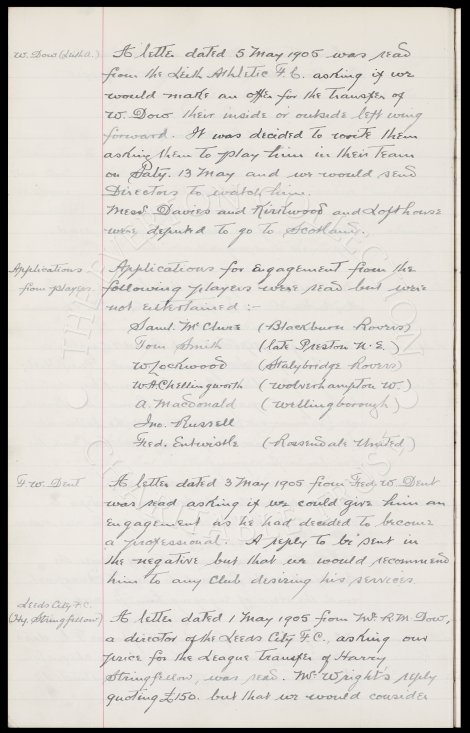 W. Dow (Leith A.) A letter dated 5 May 1905 was read
from the Leith Athletic F.C. asking if we
would make an offer for the transfer of
W. Dow their inside or outside left wing
forward. It was decided to write them
asking them to play him in their team
on Saty. 13 May and we would send
Directors to watch him.
Messrs Davies and Kirkwood and Lofthouse
were deputed to go to Scotland.
Applications Applications for engagement from the
from players. following players were read but were
not entertained :-
Saml. McClure (Blackburn Rovers)
Tom Smith (late Preston N.E.)
W Lockwood (Stalybridge Rovers)
W.A. Chellingworth (Wolverhampton W.)
A. Macdonald (Wellingborough)
Jno. Russell
Fred. Entwistle (Rossendale United)
F. W. Dent A letter dated 3 May 1905 from Fred. W. Dent
was read asking if we could give him an
engagement as he had decided to become
a professional. A reply to be sent in
the negative but that we would recommend
him to any Club desiring his services
Leeds City F.C.
(Hy. Stringfellow) A letter dated 1 May 1905 from Mr. R.M. Dow,
a director of the Leeds City F.C., asking our
price for the League Transfer of Harry
Stringfellow, was read. Mr Wright's reply
quoting £150. but that we would consider